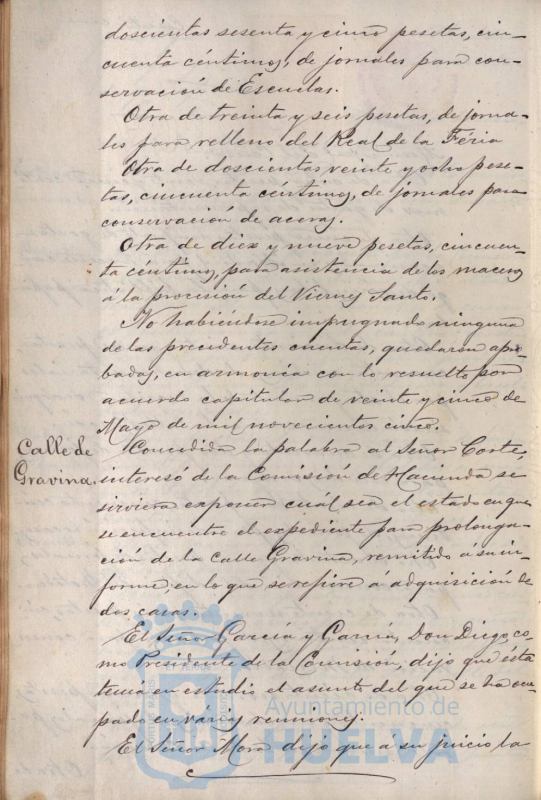 doscientas sesenta y cinco pesetas, cin-
cuenta céntimos, de jornales para con-
servación de Escuelas.
Otra de treinta y seis pesetas, de jorna-
les para relleno del Real de la Féria
Otra de doscientas veinte y ocho pese-
tas, cincuenta céntimos, de jornales para
conservación de aceras.
Otra de diez y nueve pesetas, cincuen-
ta céntimos, para asistencia de los maceros
á la procisión del Viernes Santo.
No habiéndose impugnado ninguna
de las precedentes cuentas, quedaron apro-
badas, en armonía con lo resuelto por
acuerdo capitular de veinte y cinco de
Mayo de mil novecientos cinco.
Calle de
Gravina.
Concedida la palabra al Señor Corte,
interesó de la Comisión de Hacienda se
sirviera exponer cuál sea el estado en que
se encuentre el expediente para prolonga-
ción de la calle Gravina, remitido a su in-
forme, en lo que se refiere á adquisición de
dos casas.
El Señor García y García, Don Diego, co-
mo Presidente de la Comisión, dijo que ésta
tenía en estudio el asunto del que se ha ocu-
pado en várias reuniones.
El Señor Mora dijo que a su juicio la
Ayuntamiento de
HUELVA